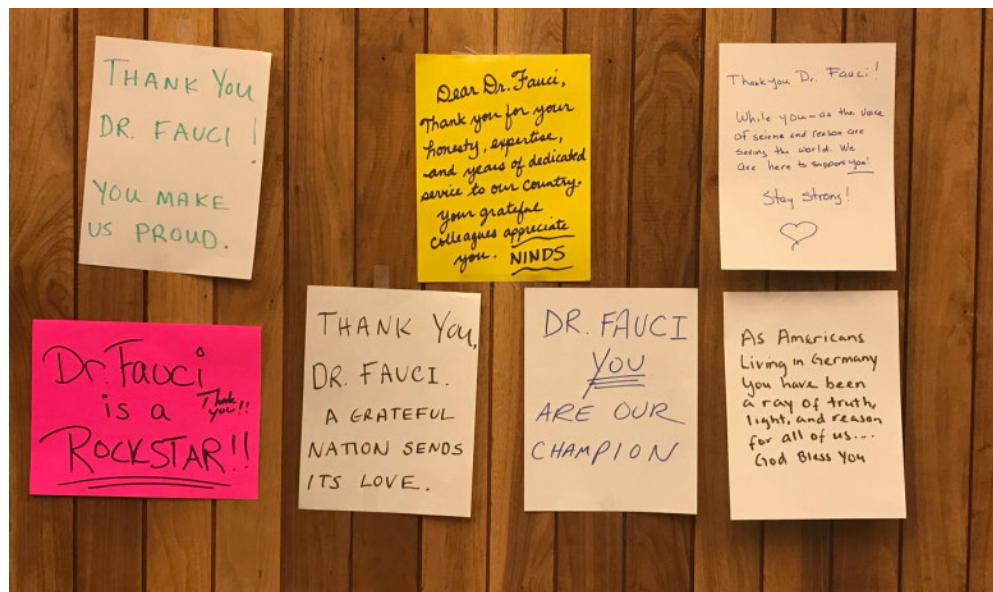 THANK YOU
DR. FAUCI !
YOU MAKE
US PROUD.
Dear Dr. Fauci,
Thank you for your
honesty, expertise,
and years of dedicated
service to our country.
Your grateful
colleagues appreciate
you. NINDS
Thank you Dr. Fauci!
While you - as the voice
of sciene and reason are
saving the world. We
are here to support you!
Stay Strong!
Dr. Fauci
is a Thank
you!!
ROCKSTAR!!
THANK YOU,
DR. FAUCI.
A GRATEFUL
NATION SENDS
ITS LOVE.
DR. FAUCI
YOU
ARE OUR
CHAMPION
As Americans
Living in Germany
You have been
a ray of truth,
light, and reason
for all of us....
God Bless You